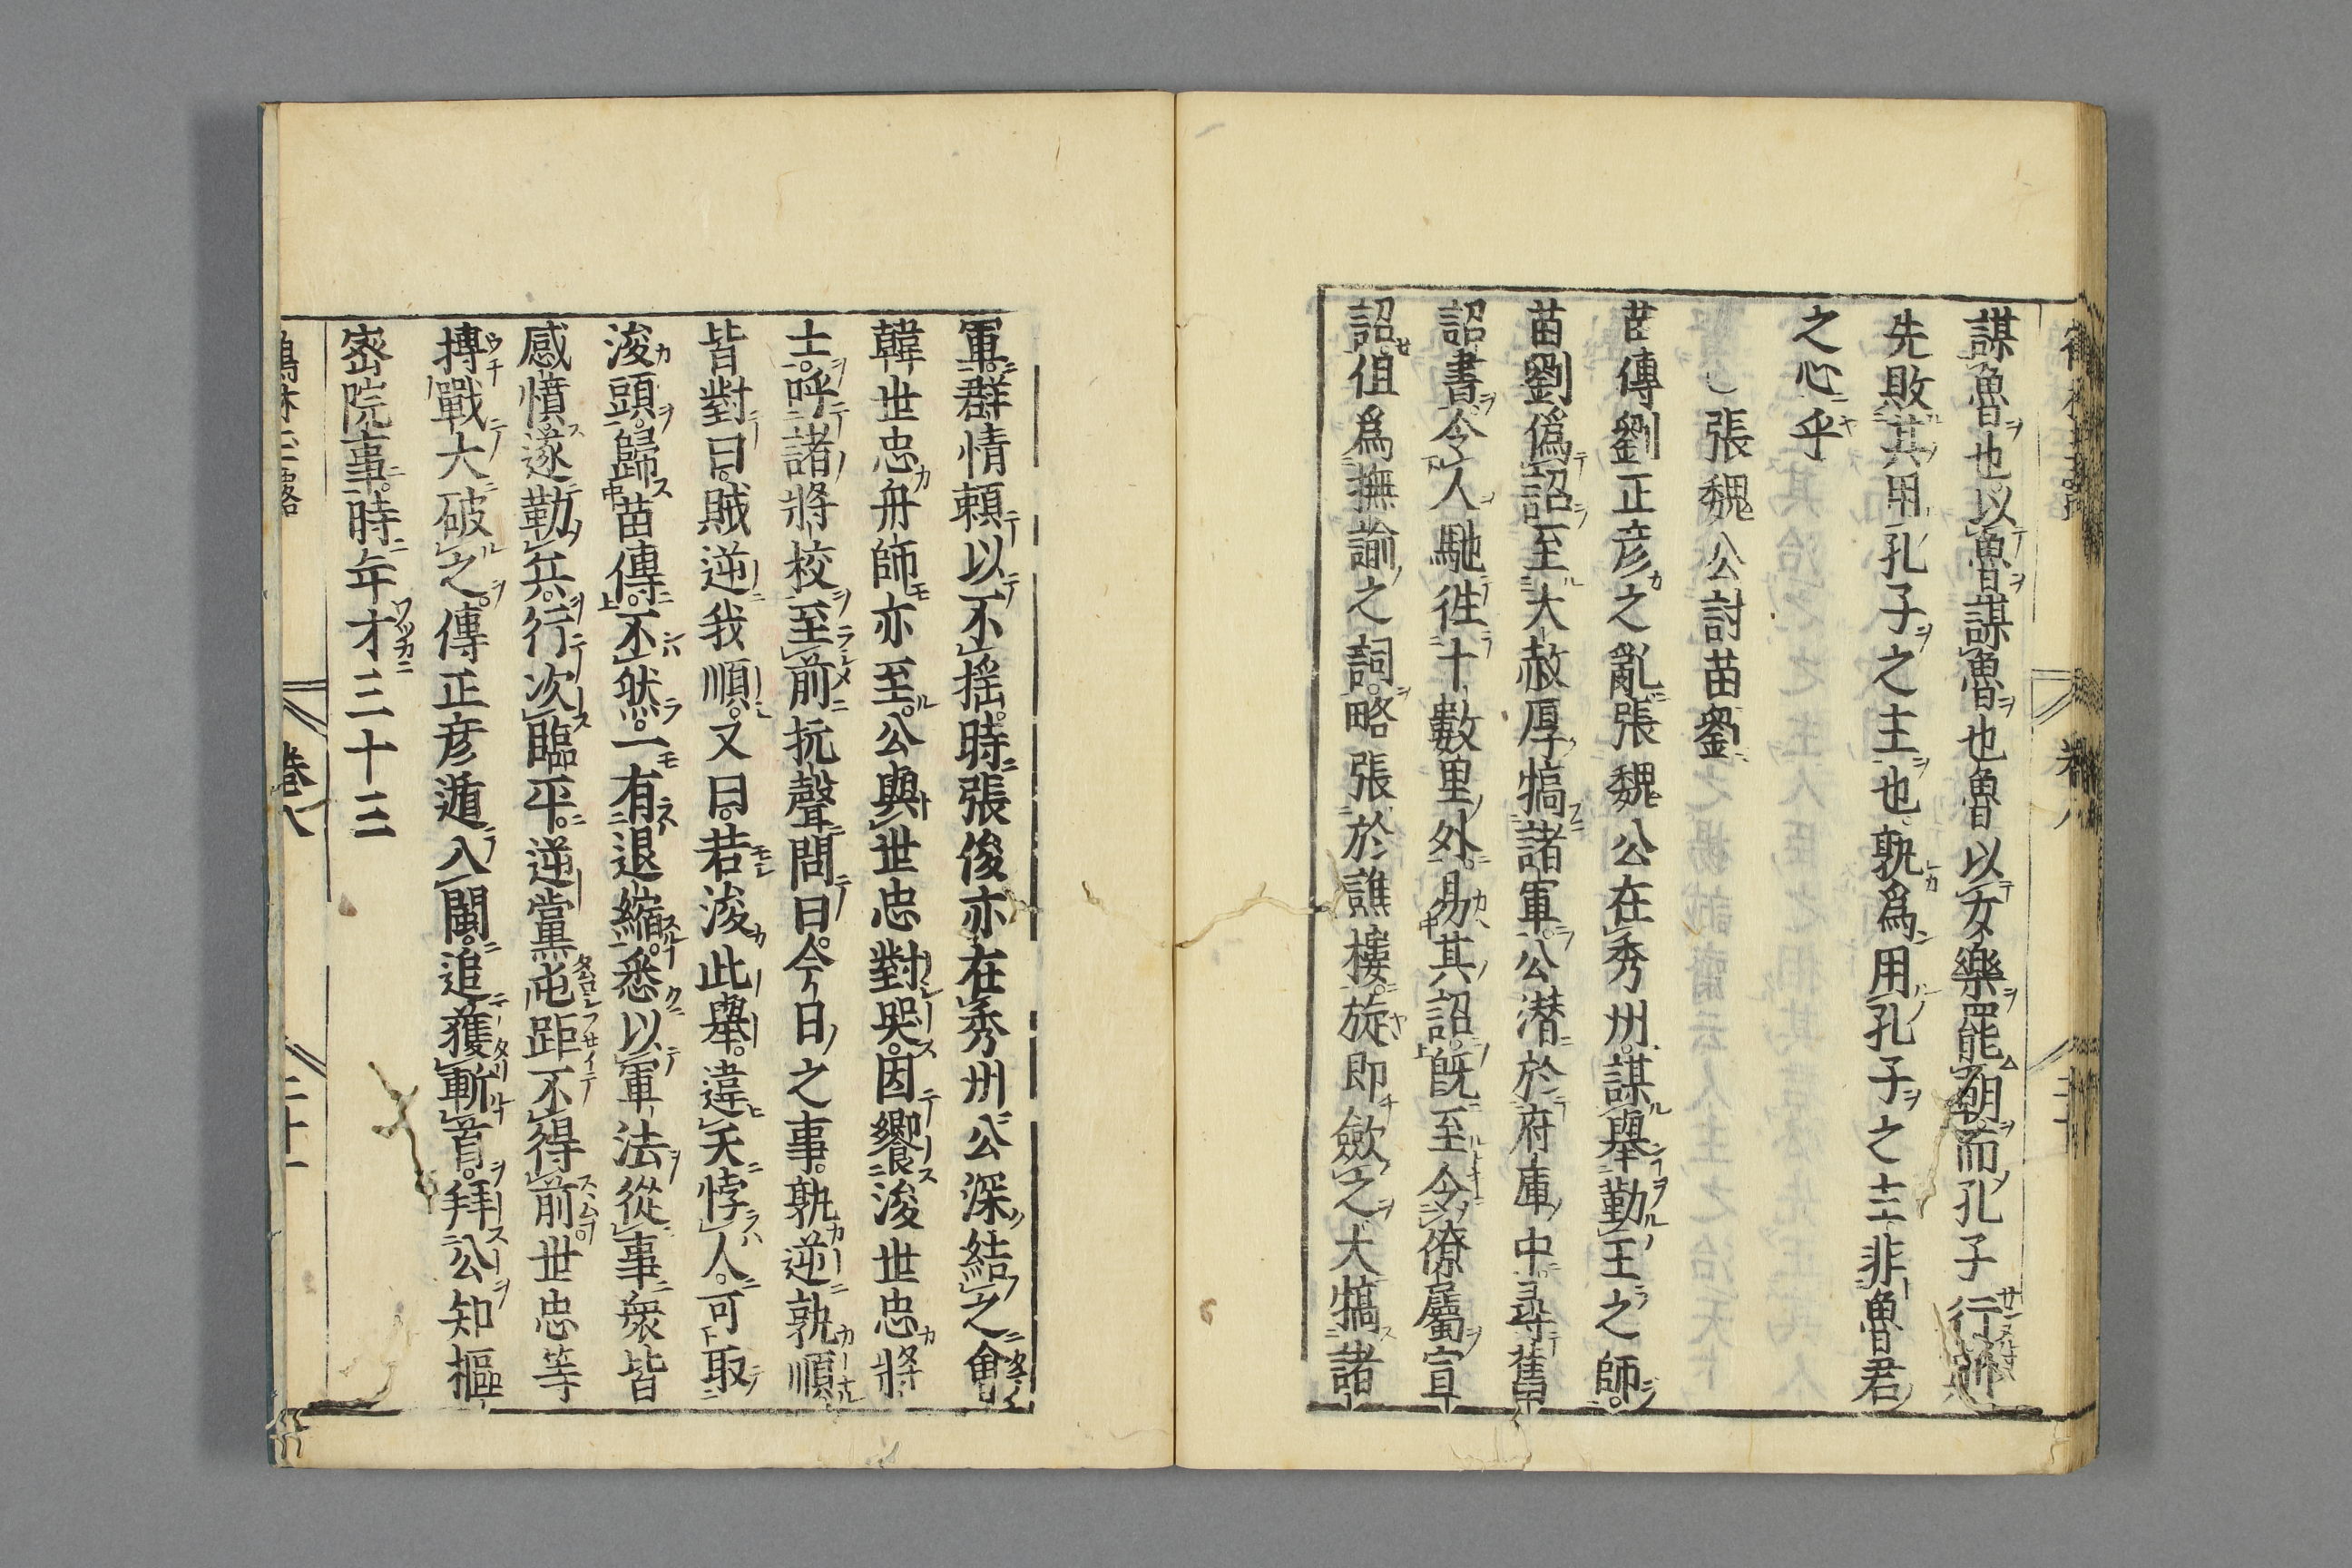 謀魯也以魯謀魯也魯以女樂罷朝而孔子行
先敗其用孔子之主也孰爲用孔子之主非魯君
之心乎
張魏公討苗劉
苗傳劉正彦之亂張魏公在秀州謀舉勤王之師
苗劉僞詔至大赦厚犒諸軍公潜於府庫中尋舊
詔書令人馳徃十數里外易其詔既至令僚屬宣
詔但爲撫諭之詞略張於譙樓旋即斂之大犒諸
軍群情頼以不揺時張俊亦在秀州公深結之會
韓世忠舟師亦至公與世忠對哭因饗浚世忠將
士呼諸將校至前抗聲問曰今日之事孰逆孰順
皆對曰賊逆我順又曰若浚此舉違天悖人可取
浚頭歸苗傳不然一有退縮悉以軍法從事衆皆
感憤遂勒兵行次臨平逆黨屯距不得前世忠等
搏戰大破之傳正彦遁入閩追獲斬首拜公知樞
密院事時年才三十三
卷八
二十一